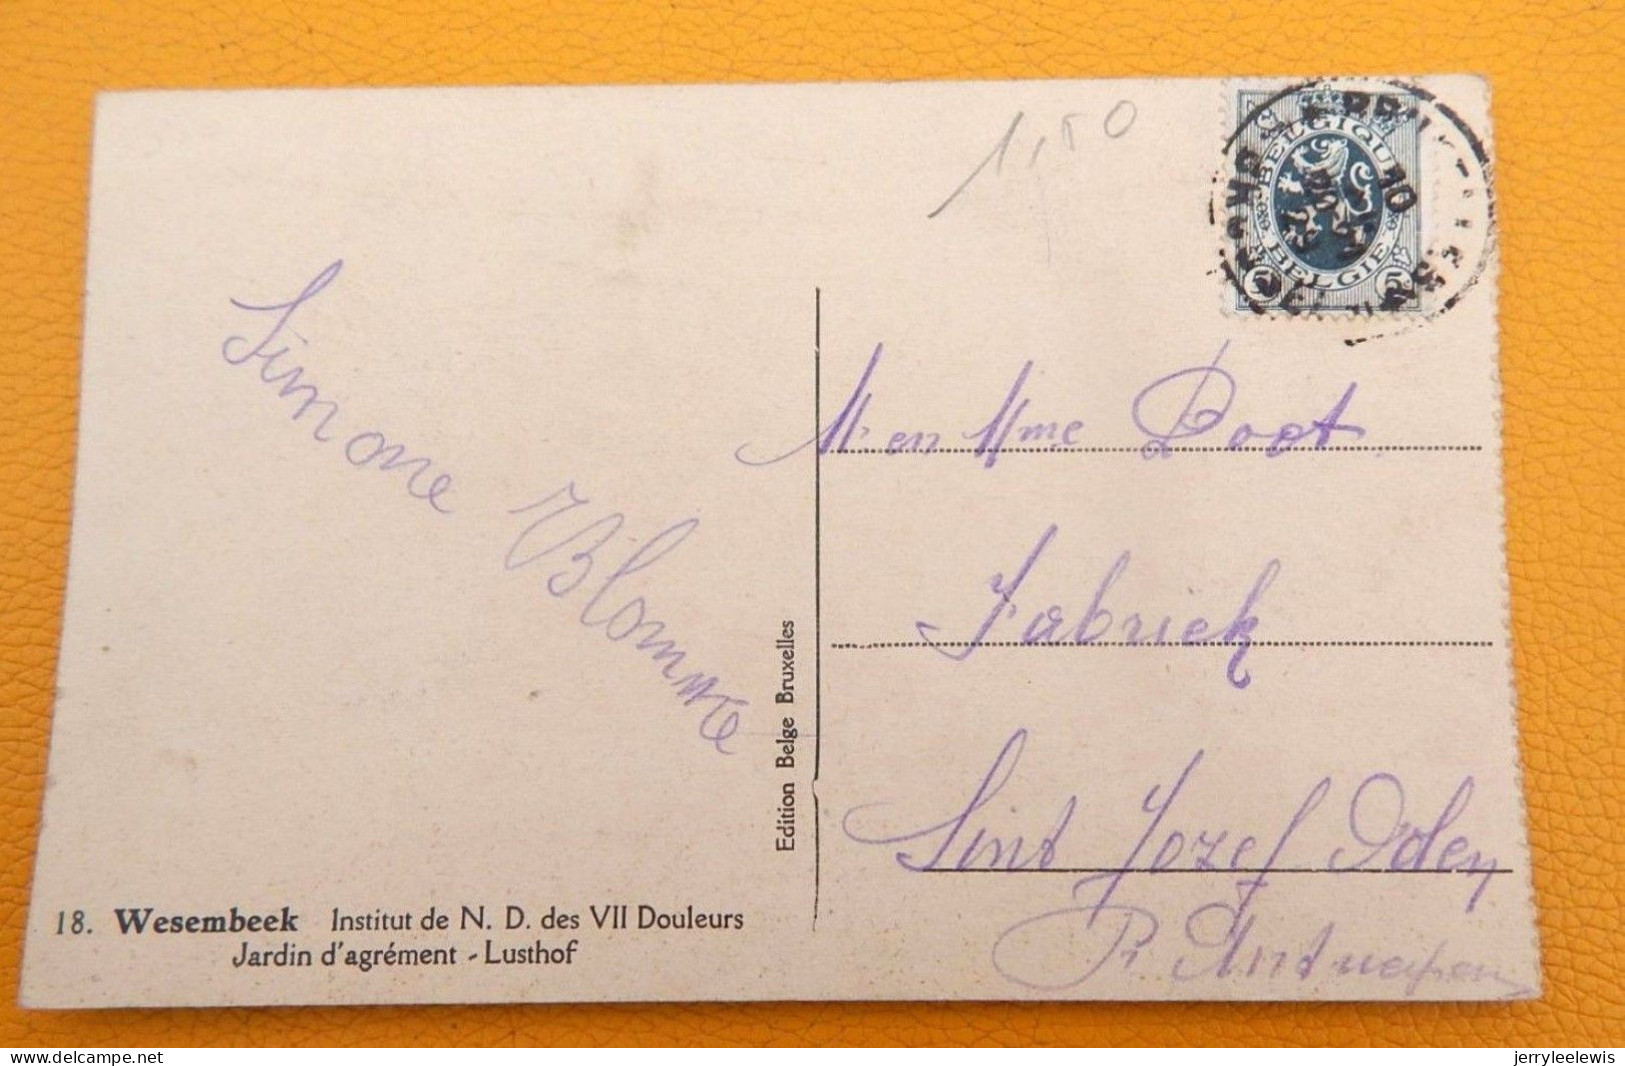 1,50
BELGIQUE
BELGIE
10
Simone Blomme
Mr en Mme Poot
Fabriek
Sint Jozef Olen
Pr. Antwerpen
Edition Belge Bruxelles
18. Wesembeek Institut de N. D. des VII Douleurs
Jardin d'agrément - Lusthof
delcampe.net
jerryleelewis